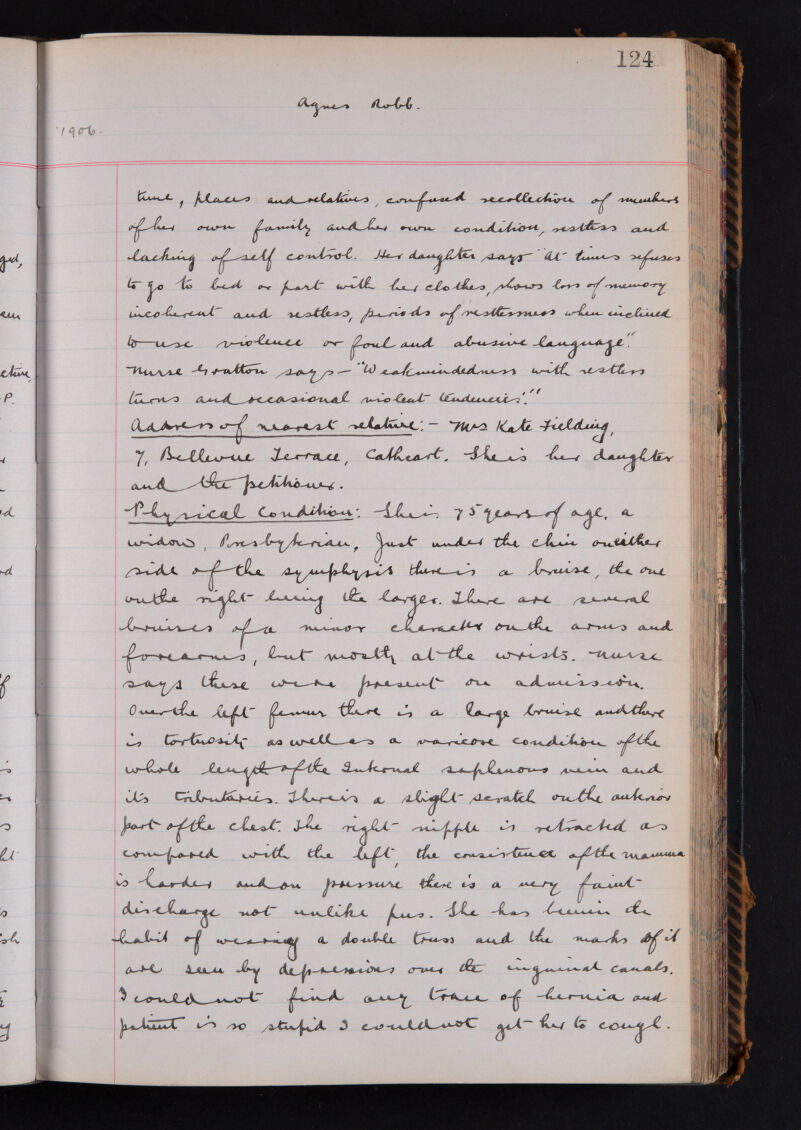 124
Agnes Robb.
1906.
time, places and relatives, confused recollection of members
of her own family and her own condition, restless and
lacking of self control. Her daughter says "At times refuses
to go to bed or part with her clothes, shows loss of memory
incoherent and restless, periods of restlessness when inclined
to use violence or foul and abusive language."
Nurse Gratton says - "Weakmindedness with restless
turns and occasional violent tendencies."
Address of nearest relative: - Mrs Kate Fielding,
7, Bellevue Terrace, Cathcart. She is her daughter
and the petitioner.
Physical Condition: She is 75 years of age, a
widow, Presbyterian. Just under the chin on either
side of the symphysis there is a bruise, the one
on the right being the larger. There are several
bruises of a minor character on the arms and
forearms, but mostly at the wrists. Nurse
says these were present on admission.
Over the left femur there is a large bruise and there
is tortuosity as well as a varicose condition of the
whole length of the Internal saphenous vein and
its tributaries. There is a slight scratch on the anterior
part of the chest. The right nipple is retracted as
compared with the left, the consistence of the mamma
is harder and on pressure there is a very faint
discharge not unlike pus. She has been in the
habit of wearing a double truss and the marks of it
are seen by depressions over the inguinal canals.
I could not find any trace of hernia and
patient is so stupid I could not get her to cough.